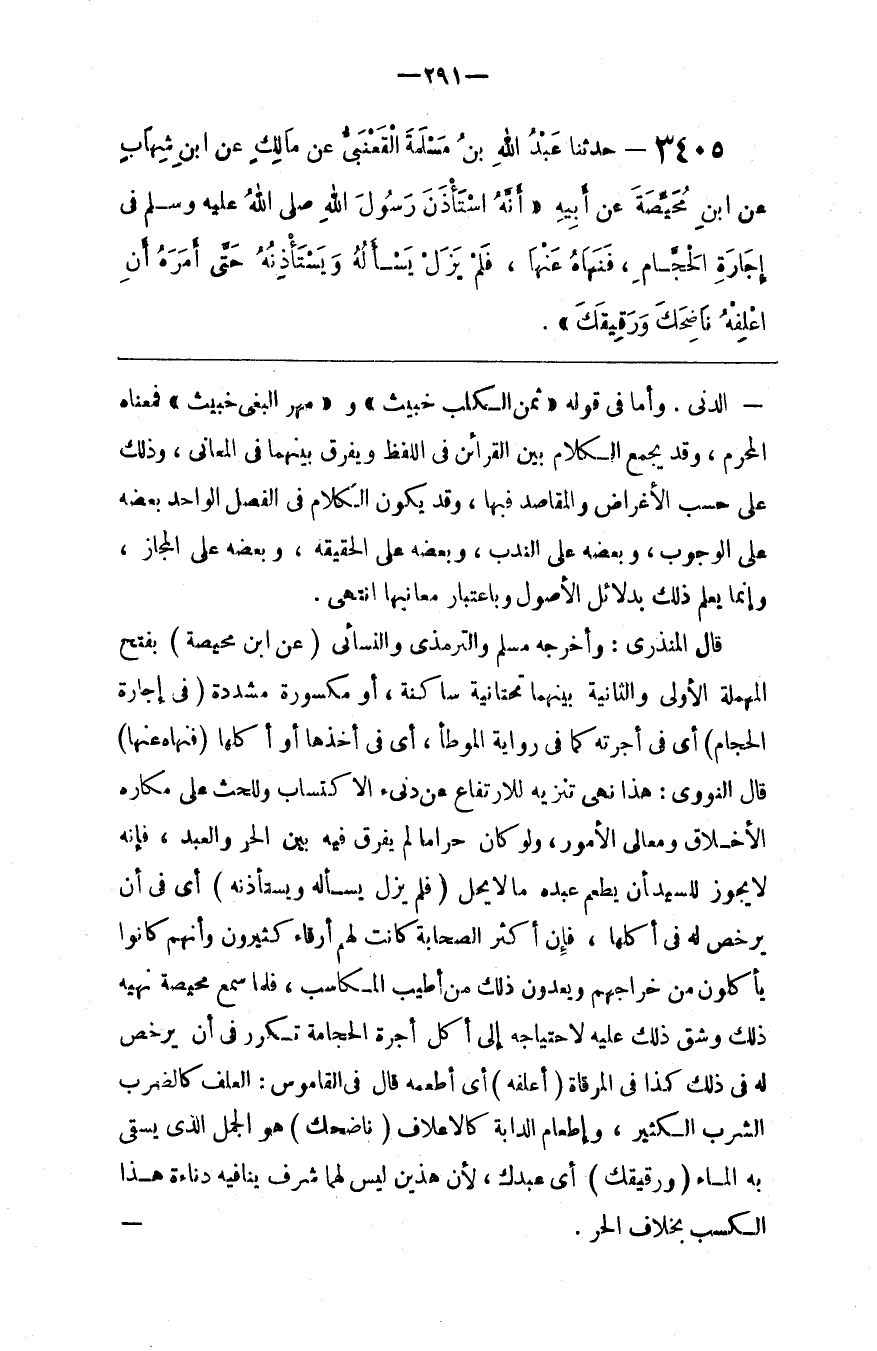 —٢٩١—
٣٤٠٥ — حدثنا عَبْدُ اللهِ بنُ مَسْلَمَةَ الْقَعْنَبِىُّ عن مَالِكٍ عن ابنِ شِهَابٍ
عن ابنِ مُحَيِّصَةَ عن أَبِيهِ « أَنَّهُ اسْتَأْذَنَ رَسُولَ اللهِ صلى اللهُ عليه وسـلم فى
إِجَارَةِ الْحَجَّـامِ ، فَنَهَاهُ عَنْهَا ، فَلَمْ يَزَلْ يَسْـأَلُهُ وَيَسْتَأْذِنُهُ حَتَّى أَمَرَهُ أَنِ
اعْلِفْهُ نَاضِحَكَ وَرَقِيقَكَ » .
— الدنى . وأما فى قوله « ثمن الـكلب خبيث » و « مهر البغى خبيث » فمعناه
المحرم ، وقد يجمع الـكلام بين القرائن فى اللفظ ويفرق بينهما فى المعانى ، وذلك
على حسب الأغراض والمقاصد فيها ، وقد يكون الكلام فى الفصل الواحد بعضه
على الوجوب ، وبعضه على الندب ، وبعضه على الحقيقه ، وبعضه على المجاز ،
وإنما يعلم ذلك بدلائل الأصول وباعتبار معانيها انتهى .
قال المنذرى : وأخرجه مسلم والترمذى والنسائى ( عن ابن محيصة ) بفتح
المهملة الأولى والثانية بينهما تحتانية ساكنة ، أو مكسورة مشددة ( فى إجارة
الحجام) أى فى أجرته كما فى رواية الموطأ ، أى فى أخذها أو أكلها (فنهاه عنها)
قال النووى : هذا نهى تنزيه للارتفاع عن دنىء الاكتساب وللحث على مكاره
الأخـلاق ومعالى الأمور ، ولو كان حراما لم يفرق فيه بين الحر والعبد ، فإنه
لا يجوز للسيد أن يطعم عبده ما لا يحل ( فلم يزل يسـأله ويستأذنه ) أى فى أن
يرخص له فى أكلها ، فإن أكثر الصحابة كانت لهم أرقاء كثيرون وأنهم كانوا
يأكلون من خراجهم ويعدون ذلك من أطيب المـكاسب ، فلما سمع محيصة نهيه
ذلك وشق ذلك عليه لاحتياجه إلى أكل أجرة الحجامة تـكرر فى أن يرخص
له فى ذلك كذا فى المرقاة ( أعلفه ) أى أطعمه قال فى القاموس : العلف كالضرب
الشرب الـكثير ، وإطعام الدابة كالاعلاف ( ناضحك ) هو الجمل الذى يسقى
به المـاء ( ورقيقك ) أى عبدك ، لأن هذين ليس لهما شرف ينافيه دناءة هـذا
الـكسب بخلاف الحر . —